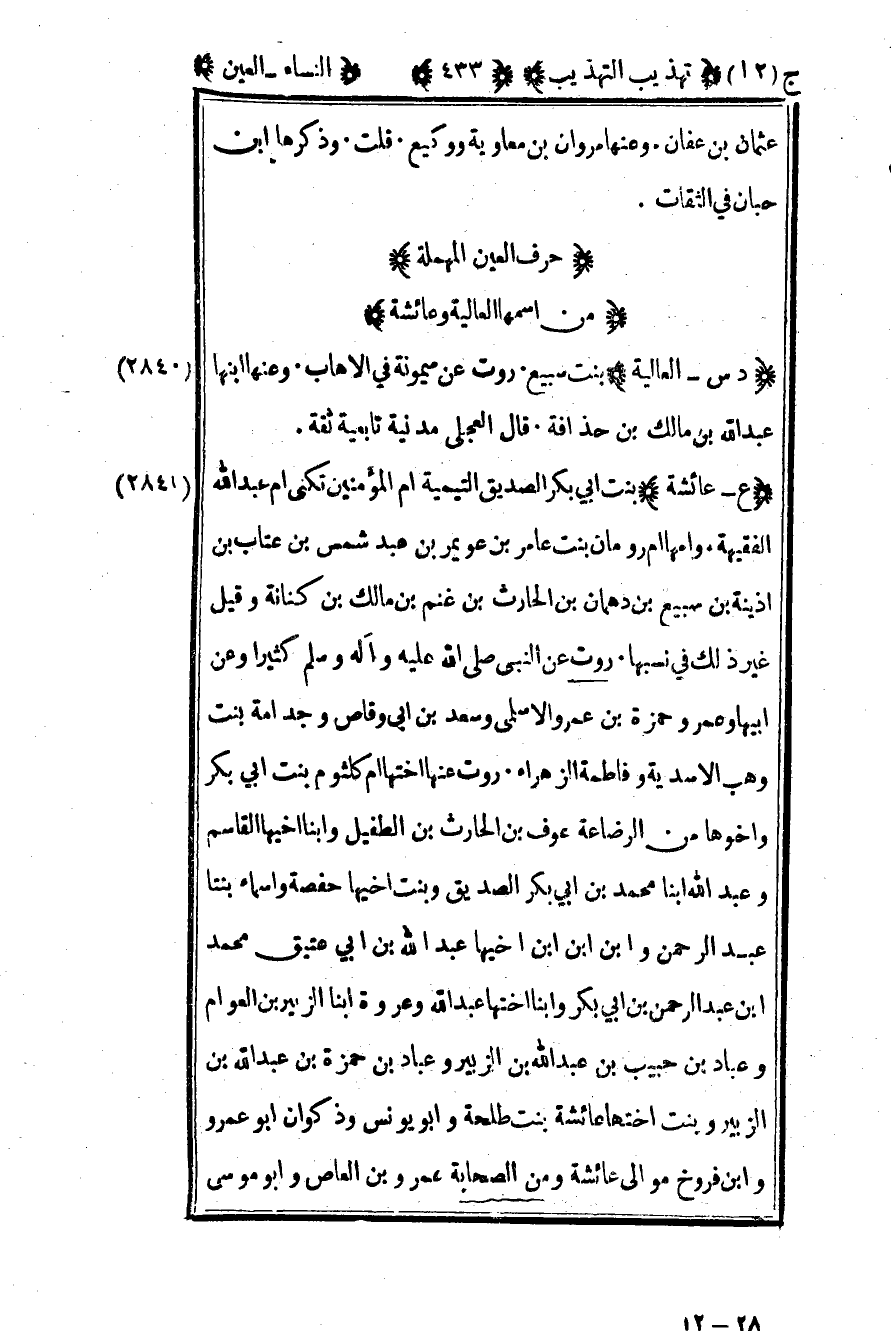 ج (١٢) ﴿ تهذيب التهذيب ﴾ ﴿ ٤٣٣ ﴾ ﴿ النساء ـ العين ﴾
عثمان بن عفان . وعنها مروان بن معاوية ووكيع . قلت . وذكرها ابن
حبان في الثقات .
﴿ حرف العين المهملة ﴾
﴿ من اسمها العالية وعائشة ﴾
﴿ د س ـ العالية ﴾ بنت سبيع . روت عن ميمونة في الاهاب . وعنها ابنها (٢٨٤٠)
عبدالله بن مالك بن حذافة . قال العجلى مدنية تابعية ثقة .
﴿ ع ـ عائشة ﴾ بنت ابي بكر الصديق التيمية ام المؤمنين تكنى ام عبدالله (٢٨٤١)
الفقيهة . وامها ام رومان بنت عامر بن عويمر بن عبد شمس بن عتاب بن
اذينة بن سبيع بن دهمان بن الحارث بن غنم بن مالك بن كنانة وقيل
غير ذلك في نسبها . روت عن النبى صلى الله عليه وآله وسلم كثيرا وعن
ابيها وعمر وحمزة بن عمرو الاسلمى وسعد بن ابي وقاص وجدامة بنت
وهب الاسدية وفاطمة الزهراء . روت عنها اختها ام كلثوم بنت ابي بكر
واخوها من الرضاعة عوف بن الحارث بن الطفيل وابنا اخيها القاسم
وعبد الله ابنا محمد بن ابي بكر الصديق وبنت اخيها حفصة واسماء بنتا
عبد الرحمن وابن ابن ابن اخيها عبد الله بن ابي عتيق محمد
ابن عبدالرحمن بن ابي بكر وابنا اختها عبدالله وعروة ابنا الزبير بن العوام
وعباد بن حبيب بن عبدالله بن الزبير وعباد بن حمزة بن عبدالله بن
الزبير وبنت اختها عائشة بنت طلحة وابو يونس وذكوان ابو عمرو
وابن فروخ موالى عائشة ومن الصحابة عمرو بن العاص وابو موسى
٢٨ – ١٢